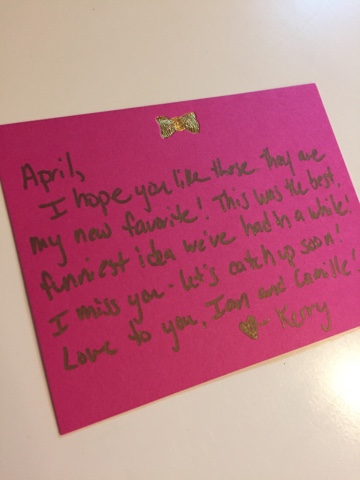 April,
I hope you like these they are
my new favorite! This was the best,
funniest idea we've had in a while!
I miss you - let's catch up soon!
Love to you, Ian and Camille!
♥ - Kerry